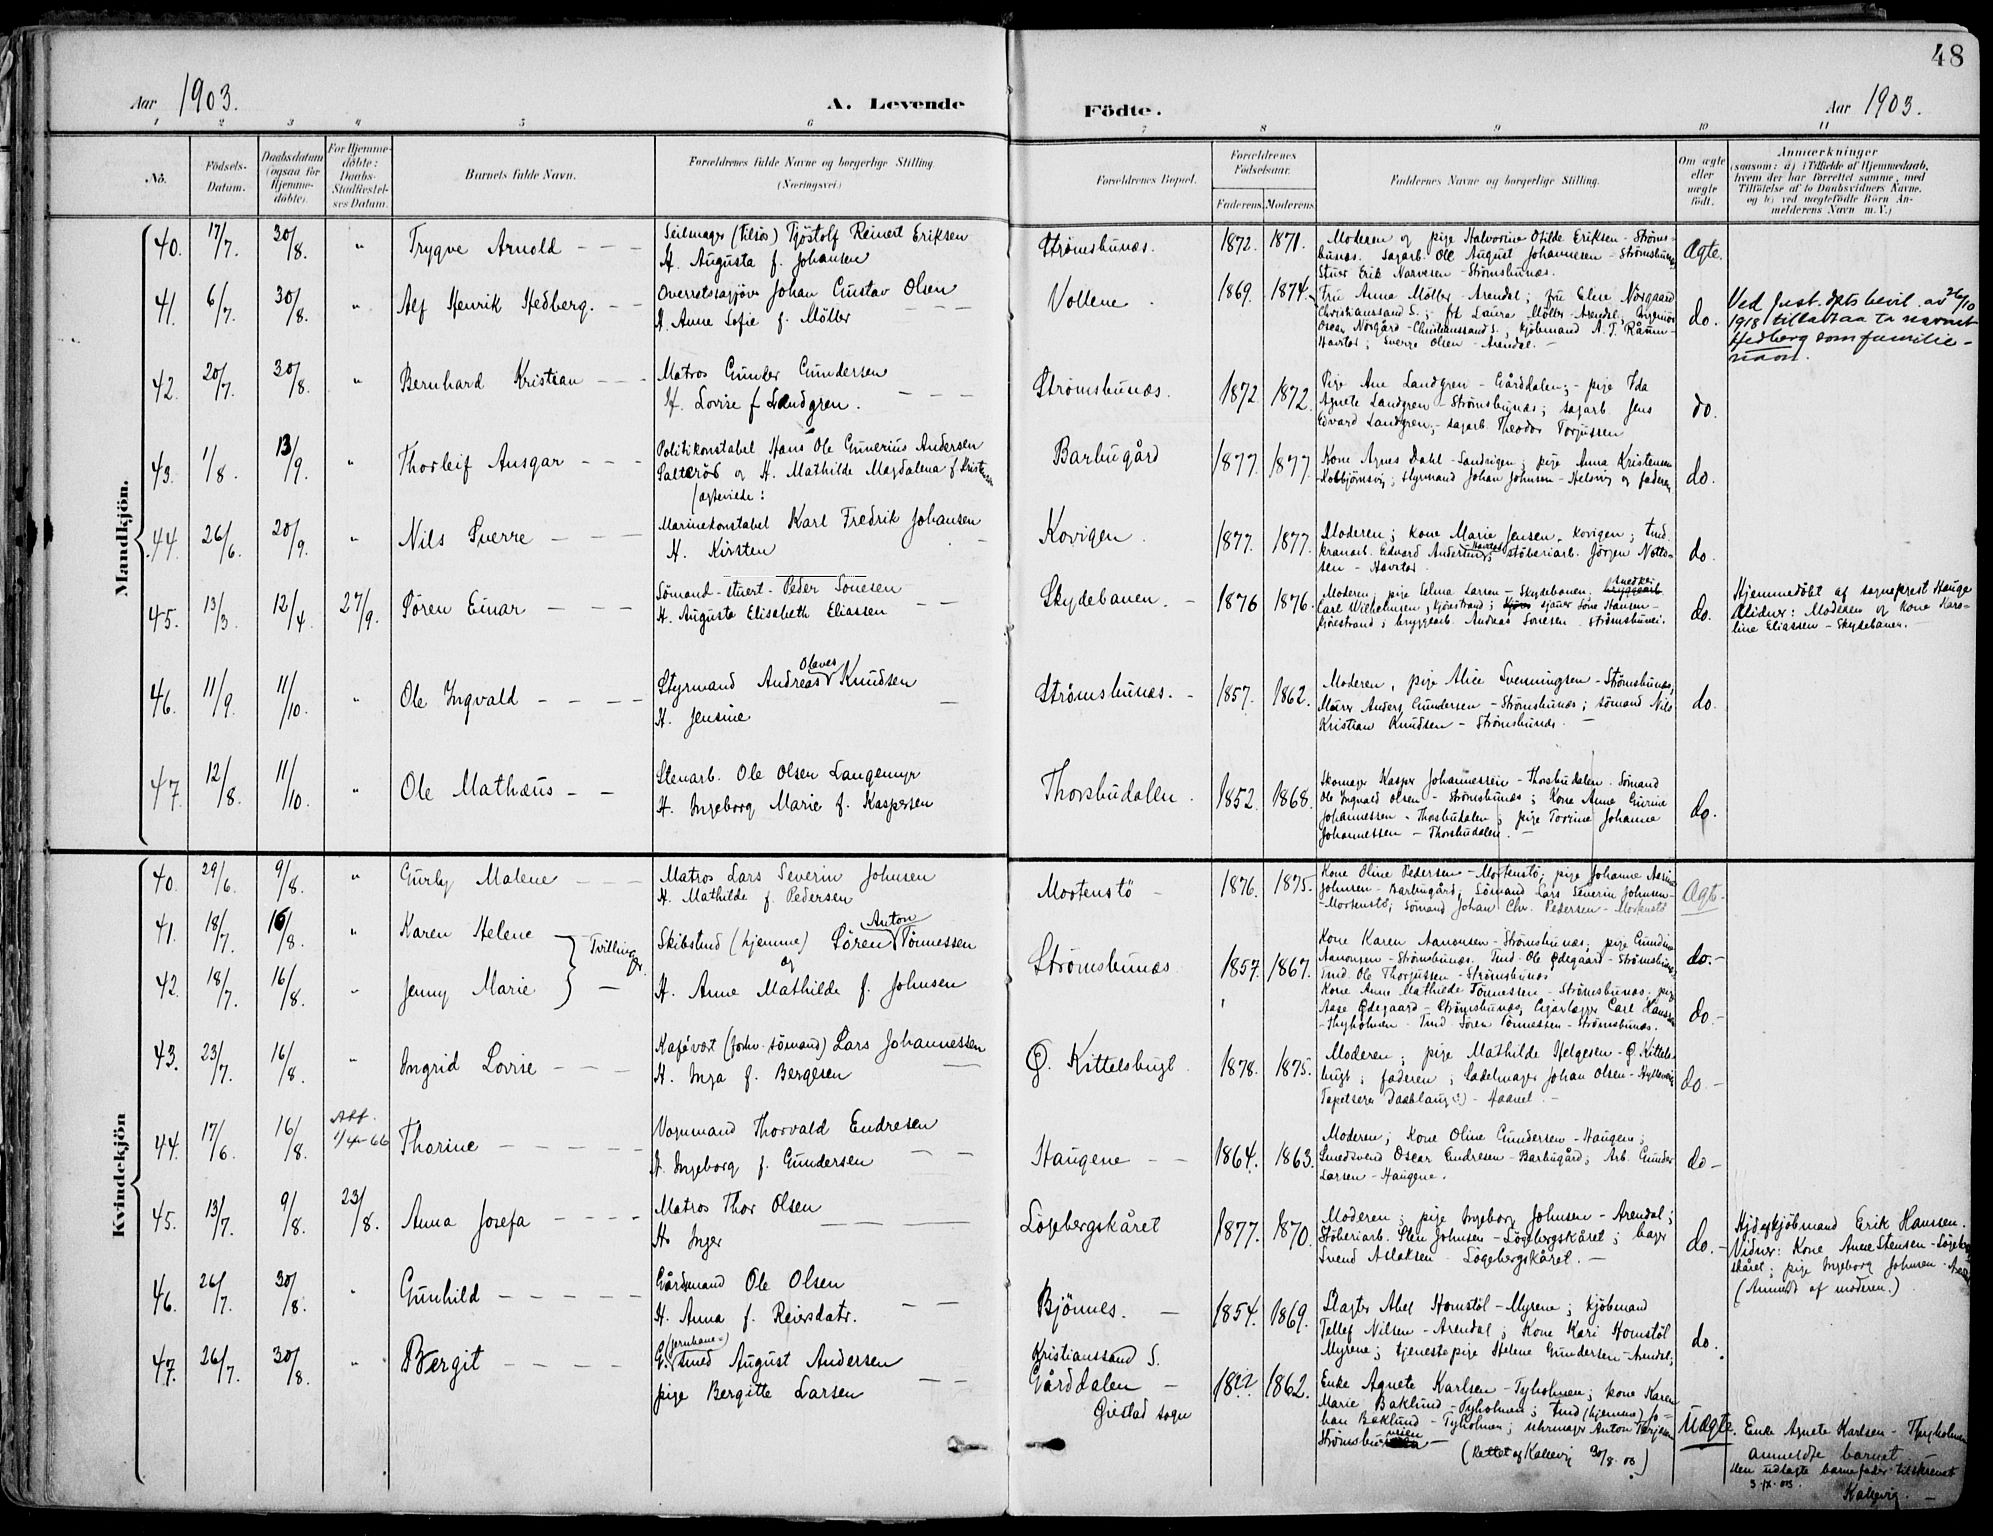 48
Aar 1903. A. Levende Födte. Aar 1903.
1 2 3 4 5 6 7 8 9 10 11
No. Födsels-Datum. Daabsdatum (ogsaa for Hjemme-döbte). For Hjemme-döbte: Daabs-Stadfæstel-ses Datum. Barnets fulde Navn. Forældrenes fulde Navne og borgerlige Stilling. (Næringsvei.) Forældrenes Bopæl. Forældrenes Födselsaar. Faderens. Moderens. Faddernes Navne og borgerlige Stilling. Om ægte eller uægte födt. Anmærkninger (saasom: a) i Tilfælde af Hjemmedaab, hvem der har forrettet samme, med Tilföielse af to Daabsvidners Navne. og b) ved uægtefödte Börn An-melderens Navn m. V.)
Mandkjön.
40. 17/7. 30/8. " Trygve Arnold - - - Seilmager (tilsjøs) Tjöstolf Reinert Eriksen
H. Augusta f. Johansen
Strømsbunæs. 1872. 1871. Moderen og pige Halvorine Otilde Eriksen - Ströms-
bunæs. Sagarb. Ole August Johannesen - Strømsbunæs
Stuer Erik Narvesen - Strømsbunæs. Ægte.
41. 6/7. 30/8. " Alf Henrik Hedberg. - - Overretssagfør Johan Gustav Olsen
H. Anne Sofie f. Möller
Vollene. 1869. 1874. Fru Anna Möller - Arendal; fru Elene Nörgaard
Christianssand S.; frk Laura Möller - Arendal, Ingeniör
Oscar Nörgård - Christianssand S., Kjöbmand A. T. Råum-
Havstad; Sverre Olsen - Arendal. - do. Ved Just. dpts bevil. av 26/10
1918 tillatt aa ta navnet
Hedberg som familie-
navn.
42. 20/7. 30/8. " Bernhard Kristian - - - Matros Gunder Gundersen
H. Lovise f Landgren.
Strømsbunæs. 1872 1872. Pige Ane Landgren - Gårddalen; - pige Ida
Agnete Landgren - Strømsbunæs; sagarb. Jens
Edvard Landgren; - sagarb. Theodor Torjussen do.
43. 1/8. 13/9. " Thorleif Ansgar - - - Politikonstabel Hans Ole Gunerius Andersen
Salterød og H. Mathilde Magdalena f Kristensen
(agtevilde:
Barbugård 1877. 1877. Kone Agnes Dahl - Sandvigen; pige Anna Kristensen
Kolbjörnsvig; Styrmand Johan Johnsen - Helsvig og faderen do.
44. 26/6. 20/9. " Nils Sverre - - - Marinekonstabel Karl Fredrik Johansen
H. Kirsten
Kovigen. 1877. 1877. Moderen; Kone Marie Jensen. Kovigen; tmd.
Kranarb. Edvard Andersen Havstad; støberiarb. Jörgen Natto-
sen - Havstad. do.
45. 13/3. 12/4. 27/9. Sören Einar - - - Sömand - stuert - Peder Sonesen
H. Augusta Elisabeth Eliassen
Skydebanen. - 1876 1876. Moderen; pige Selma Larsen - Skydebanen; snedker
Carl Wilhelmsen, Kjöestrand; sjauer Sone Hansen -
Kjöestrand; bryggearb. Andreas Sonesen. Strømsbuvei. do. Hjemmedöbt af sogneprest Hauge
Vidner: Moderen og Kone Karo-
line Eliassen - Skydebanen. -
46. 11/9. 11/10. " Ole Ingvald - - - - Styrmand Andreas Olaves Knudsen
H. Jensine
Strømsbunæs. - 1857. 1862. Moderen, pige Alice Svenningsen - Strömsbunæs,
Murer Anders Gundersen - Strömsbunæs; sömand Nils
Kristian Knudsen - Strömsbunæs. do.
47. 12/8. 11/10. " Ole Mathæus - - Stenarb. Ole Olsen Langemyr
H. Ingeborg Marie f. Kaspersen
Thorsbudalen. 1852. 1868. Skomager Kasper Johannessen - Thorsbudalen. Sömand
Ole Ingvald Olsen - Strömsbunæs; Kone Anne Gurine
Johannessen - Thorsbudalen; pige Torrine Johanne
Johannessen - Thorsbudalen. do.
Kvindekjön
40. 29/6. 9/8. " Gurly Malene - - - Matros Lars Severin Johnsen
H. Mathilde f. Pedersen
Mortenstö - 1876. 1875. Kone Oline Pedersen - Mortenstö; pige Johanne Asrine
Johnsen - Barbugård; Sömand Lars Severin Johnsen -
- Mortenstö; Sömand Johan Chr. Pedersen - Mortenstö Ægte.
41. 18/7. 16/8. " Karen Helene Tvillinger. Skibstmd (hjemme) Sören Anton Tönnessen
Strømsbunæs 1857. 1867. Kone Karen Aanonsen - Strömsbunæs; pige Gundine
Aanonsen - Strömsbunæs. Tmd. Ole Ødegaard - Strömsbunæs
Tmd. Ole Thorjussen - Strömsbunæs do. -
42. 18/7. 16/8. " Jenny Marie - og
H. Anne Mathilde f. Johnsen
Kone Anne Mathilde Tönnessen - Strömsbunæs, pige
Aase Ødegaard - Strömsbunæs, Cigarlager Carl Hansen
- Thyholmen. Tmd. Sören Tönnessen - Strömsbunæs. do. -
43. 23/7. 16/8. " Ingrid Lovise - - - Kafévært (forhv. sömand) Lars Johannessen
H. Inga f. Bergesen
Ø. Kittelsbugt. 1878. 1875. Moderen; pige Mathilde Helgesen - Ø. Kittels-
bugt; faderen; Sadelmager Johan Olsen - Hyllsveien
Tapetserer - Haavet. - do. -
44. 17/6. 16/8. Att. 1/4-66 Thorine - - - - Vognmand Thorvald Endresen
H. Ingeborg f. Gundersen
Haugene - - 1864. 1863. Moderen; Kone Oline Gundersen - Haugene;
Smedsvend Oscar Endresen - Barbugård; Arb. Gunder
Larsen - Haugene. do -
45. 13/7. 9/8. 23/8. Anna Josefa - - - - Matros Thor Olsen
H. Inger
Lögebergskåret 1877. 1870. Moderen; pige Ingeborg Johnsen - Arendal;
Støberiarb. Sten Johnsen - Lögebergskåret; bager
Svend Aslaksen - Lögebergskåret. - do. - Hjd. af kjöbmand Erik Hanssen.
Vidner: Kone Anne Stensen - Lögeberg-
skåret; pige Ingeborg Johnsen - Arendal
(Anmeldt af moderen.)
46. 26/7. 30/8. " Gunhild - - - - - Gårdmand Ole Olsen
H. Anna f. Reiersdatr.
Bjönnes. - 1854. 1869. Slagter Abel Homstöl - Myrene; kjöbmand
Tellef Nilsen - Arendal; Kone Kari Homstöl
Myrene; tjenestepige Helene Gundersen - Arendal; do.
47. 26/7. 30/8. " Bergit - - - - G. (jernbane-) smed August Andersen
pige Bergitte Larsen
Kristianssand S.
Gårddalen -
Øiestad sogn
1862. Enke Agnete Karlsen - Tyholmen; kone Karen
Marie Baklund - Tyholmen; tmd (hjemme) Jo-
han Baklund - Tyholmen; uhrmager Anton Terjesen
Strömsbuveien -
(Rettet af Kallevig 30/8. 03.) Uægte. Enke Agnete Karlsen - Thyholmen
anmeldte barnet
den udlagte barnefader tilskrevet
3.IX.03.
Kallevig. -